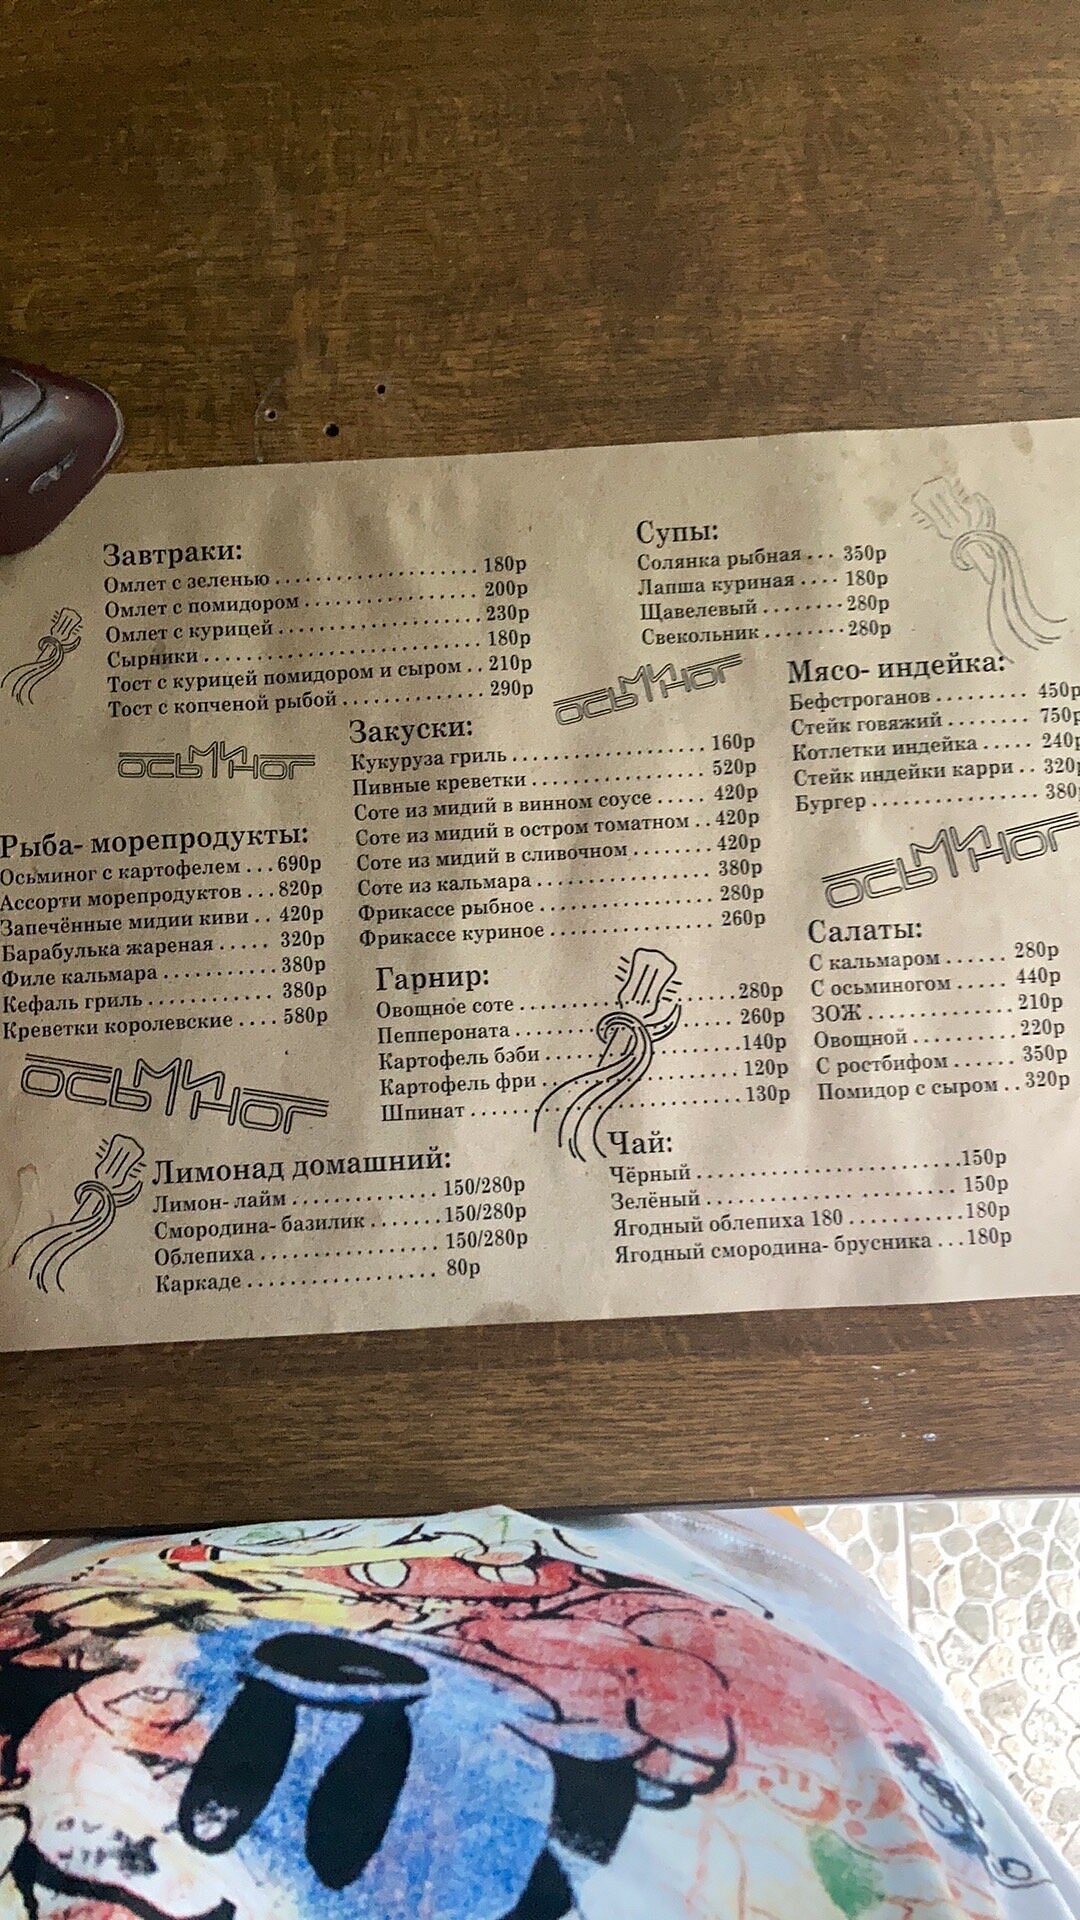 Завтраки:
Омлет с зеленью ..................... 180р
Омлет с помидором .................. 200р
Омлет с курицей ..................... 230р
Сырники ............................ 180р
Тост с курицей помидором и сыром .. 210р
Тост с копченой рыбой .............. 290р
Супы:
Солянка рыбная ... 350р
Лапша куриная .... 180р
Щавелевый ........ 280р
Свекольник ........ 280р
ОСЬМИНОГ
Мясо- индейка:
Бефстроганов ......... 450р
Стейк говяжий ........ 750р
Котлетки индейка ..... 240р
Стейк индейки карри .. 320р
Бургер ............... 380р
ОСЬМИНОГ
Закуски:
Кукуруза гриль ..................... 160р
Пивные креветки ................... 520р
Соте из мидий в винном соусе ..... 420р
Соте из мидий в остром томатном .. 420р
Соте из мидий в сливочном ........ 420р
Соте из кальмара .................. 380р
Фрикассе рыбное .................. 280р
Фрикассе куриное ................. 260р
ОСЬМИНОГ
Рыба- морепродукты:
Осьминог с картофелем ... 690р
Ассорти морепродуктов ... 820р
Запечённые мидии киви .. 420р
Барабулька жареная ..... 320р
Филе кальмара ........... 380р
Кефаль гриль ............ 380р
Креветки королевские .... 580р
ОСЬМИНОГ
Гарнир:
Овощное соте ...................... 280р
Пеппероната ...................... 260р
Картофель бэби .................... 140р
Картофель фри .................... 120р
Шпинат ............................ 130р
Салаты:
С кальмаром ...... 280р
С осьминогом ..... 440р
ЗОЖ ............... 210р
Овощной ........... 220р
С ростбифом ...... 350р
Помидор с сыром .. 320р
Лимонад домашний:
Лимон- лайм .............. 150/280р
Смородина- базилик ....... 150/280р
Облепиха ................. 150/280р
Каркаде .................. 80р
Чай:
Чёрный ......................... 150р
Зелёный ........................ 150р
Ягодный облепиха 180 ........... 180р
Ягодный смородина- брусника ... 180р